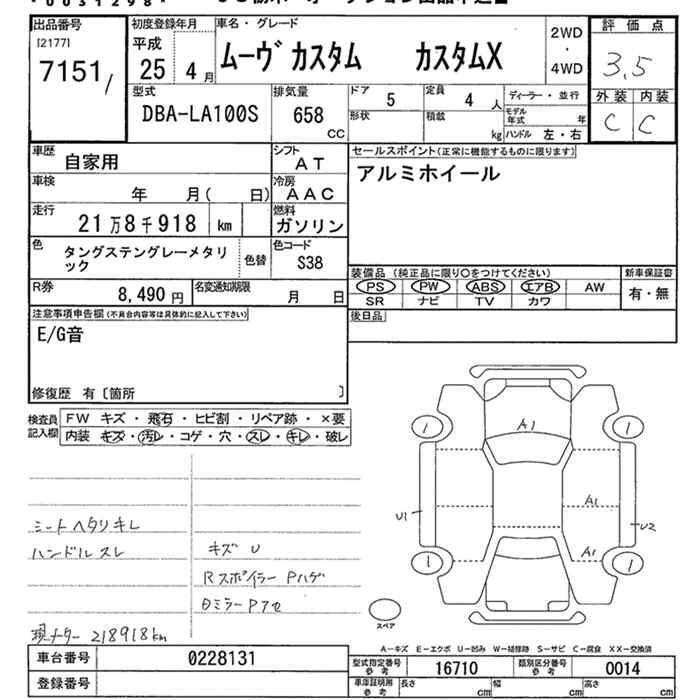 出品番号
[2177]
7151/
初度登録年月
平成
25 4月
車名・グレード
ムーヴ カスタム カスタムX
2WD
・
4WD
評価点
3.5
外装 内装
C C
型式
DBA-LA100S
排気量
658
CC
ドア 5
定員 4 人
形状
積載 kg
ディーラー・並行
モデル年式 年
ハンドル 左・右
車歴 自家用
シフト AT
セールスポイント(正常に機能するものに限ります)
アルミホイール
車検 年 月( 日)
冷房 AAC
走行 21万8千918 km
燃料 ガソリン
色 タングステングレーメタリック
色替
色コード S38
装備品 (純正品に限り○をつけてください)
新車保証書
PS PW ABS エアB AW
有・無
SR ナビ TV カワ
R券 8,490 円
名変通知期限 月 日
後日品
注意事項申告欄(不具合内容等は具体的に記入して下さい)
E/G音
修復歴 有 [箇所 ]
検査員記入欄
FW キズ・飛石・ヒビ割・リペア跡・×要
内装 キズ・汚レ・コゲ・穴・スレ・キレ・破レ
シートヘタリキレ
ハンドルスレ
キズ U
Rスポイラー Pハゲ
現メーター 218918km
1 A1 1
U1 A1 U2
A1
1 1
スペア
A-キズ E-エクボ U-凹み W-補修跡 S-サビ C-腐食 XX-交換済
車台番号 0228131
登録番号
型式指定番号 参考 16710
類別区分番号 参考 0014
車庫証明用 参考 長さ cm 幅 cm 高さ cm